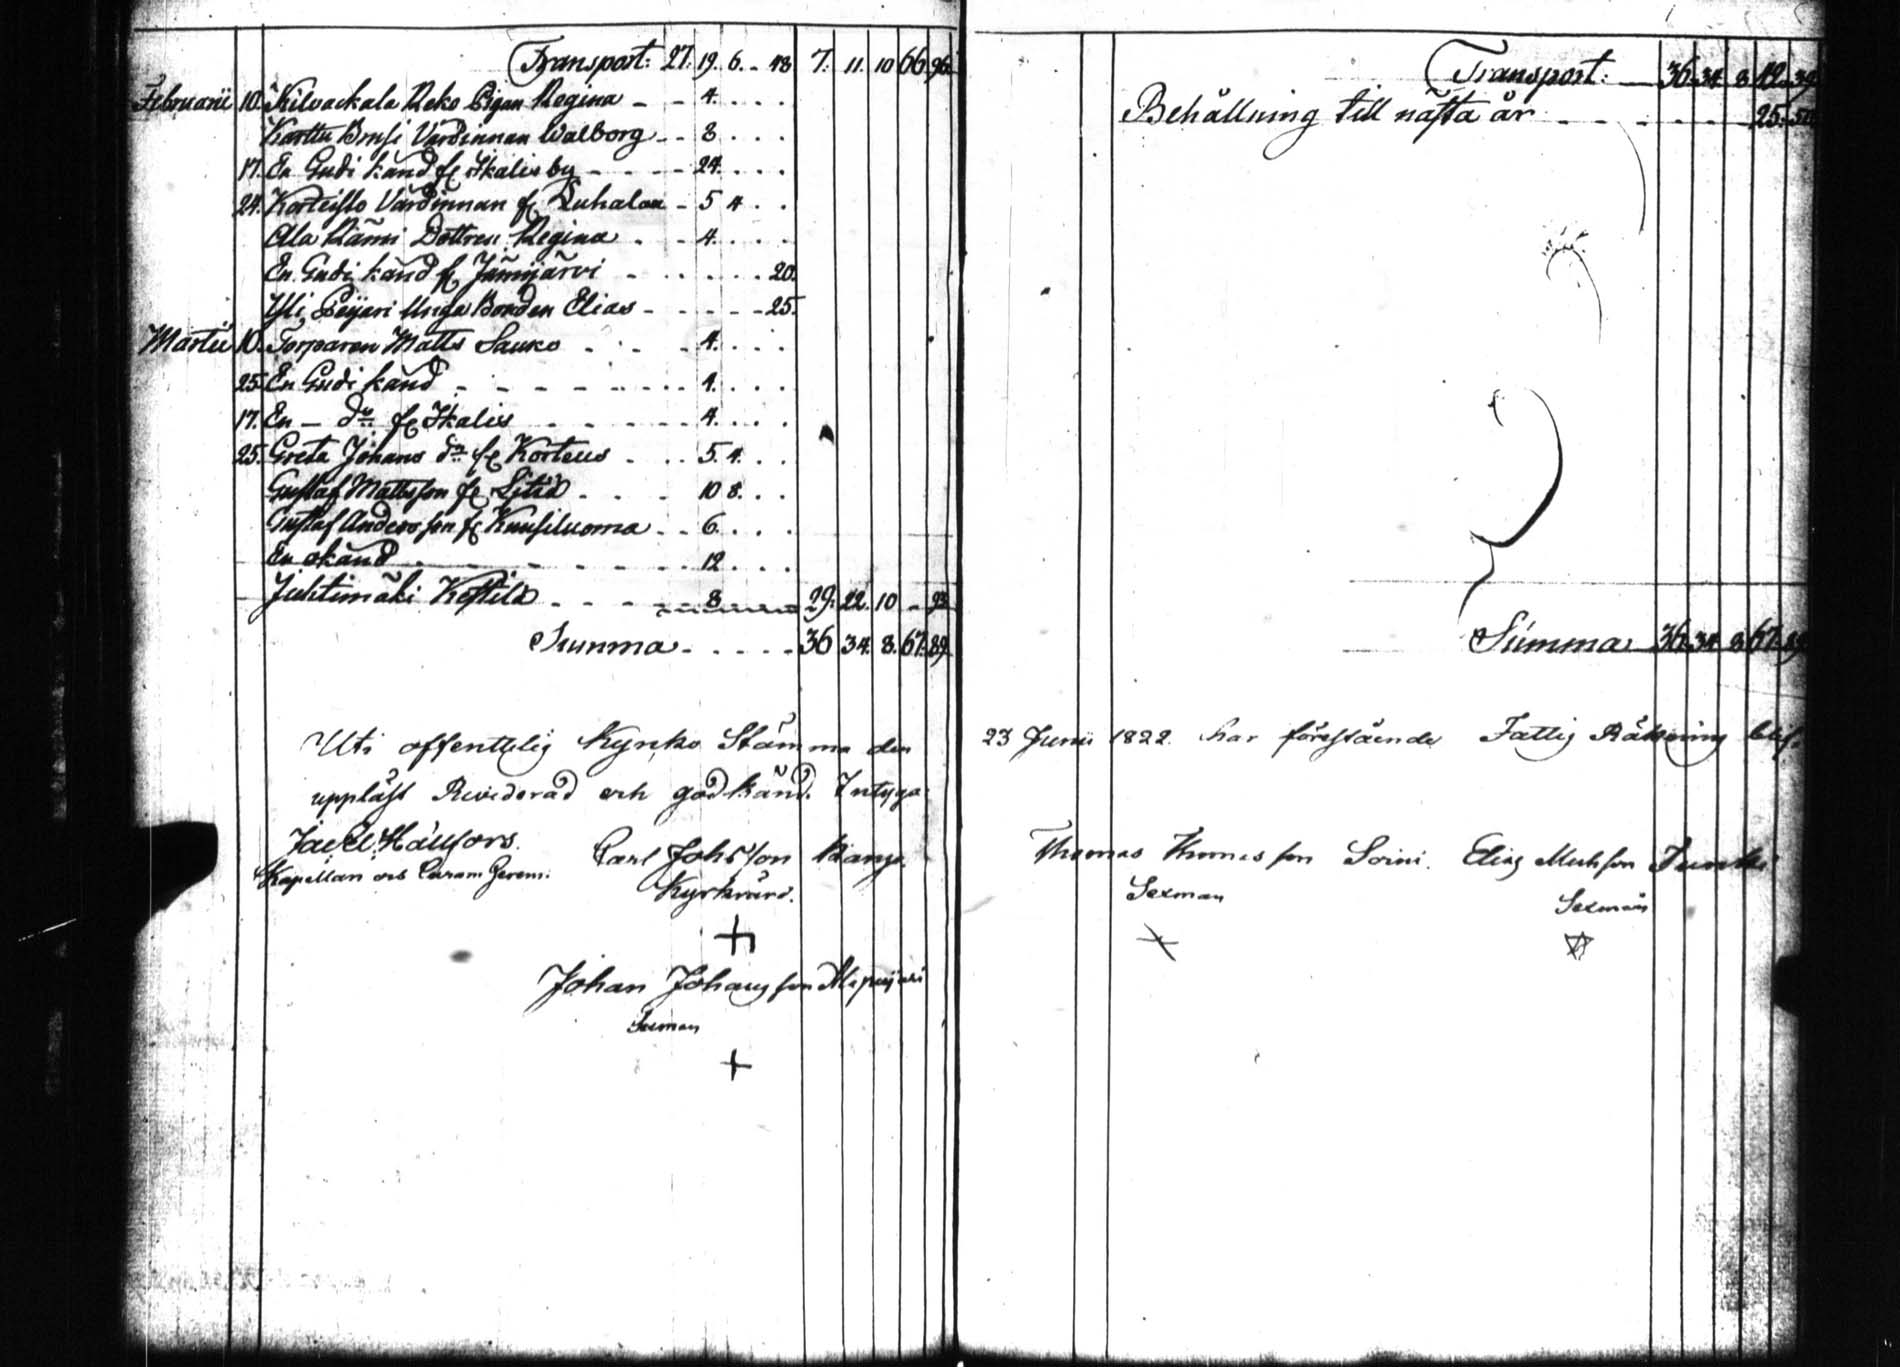 Transport: 27. 19. 6. - 48 7. 11. 10 66 96.
Februarii 10. Kilvackala Reko Pigan Regina - - 4. . . .
Karttu Brusi Värdinnan Walborg - - 8 . . . .
17. En Gudi känd fr Ikalis by - - - - 24. . . .
24. Korteisto Värdinnan fr Luhalaa - 5 4 . .
Ala Känni Dottren Regina . - 4. . . .
En Gudi känd fr Jämijärvi - . . . . . 20.
Yli Peijari Unga Bonden Elias - - - - - 25.
Martii 10. Torparen Matts Sauko . . . 4. . . .
25. En Gudi känd - - - - - - - 4. . . .
17. En - do fr Ikalis - - - - - 4. . . .
25. Greta Johans dr fr Korteus . . . 5. 4. . .
Gustaf Mattsson fr . . . 10 8. . .
Gustaf Andersson fr Kuusiluoma - - 6. . . .
En okänd - - - - - - - 12 . . .
Juhtimäki Kostila - - - - 8 29. 22. 10 - 93
Summa - - - - - 36 34. 8. 67. 89.
Uti offentelig Kyrko Stämma den
uppläst Reviderad och godkänd. Intyga
Hällfors. Carl Johsson
Kapellan Kyrkvärd.
Johan Johansson
Sexman
Transport: 36 34. 8 42. 39
Behållning till nästa år - - - - - - 25. 50
Summa 36. 34 8 67. 89
23 Junii 1822. har föreståendes Fattig Räkning blif.
Thomas Thomasson Soini. Elias
Sexman Sexman